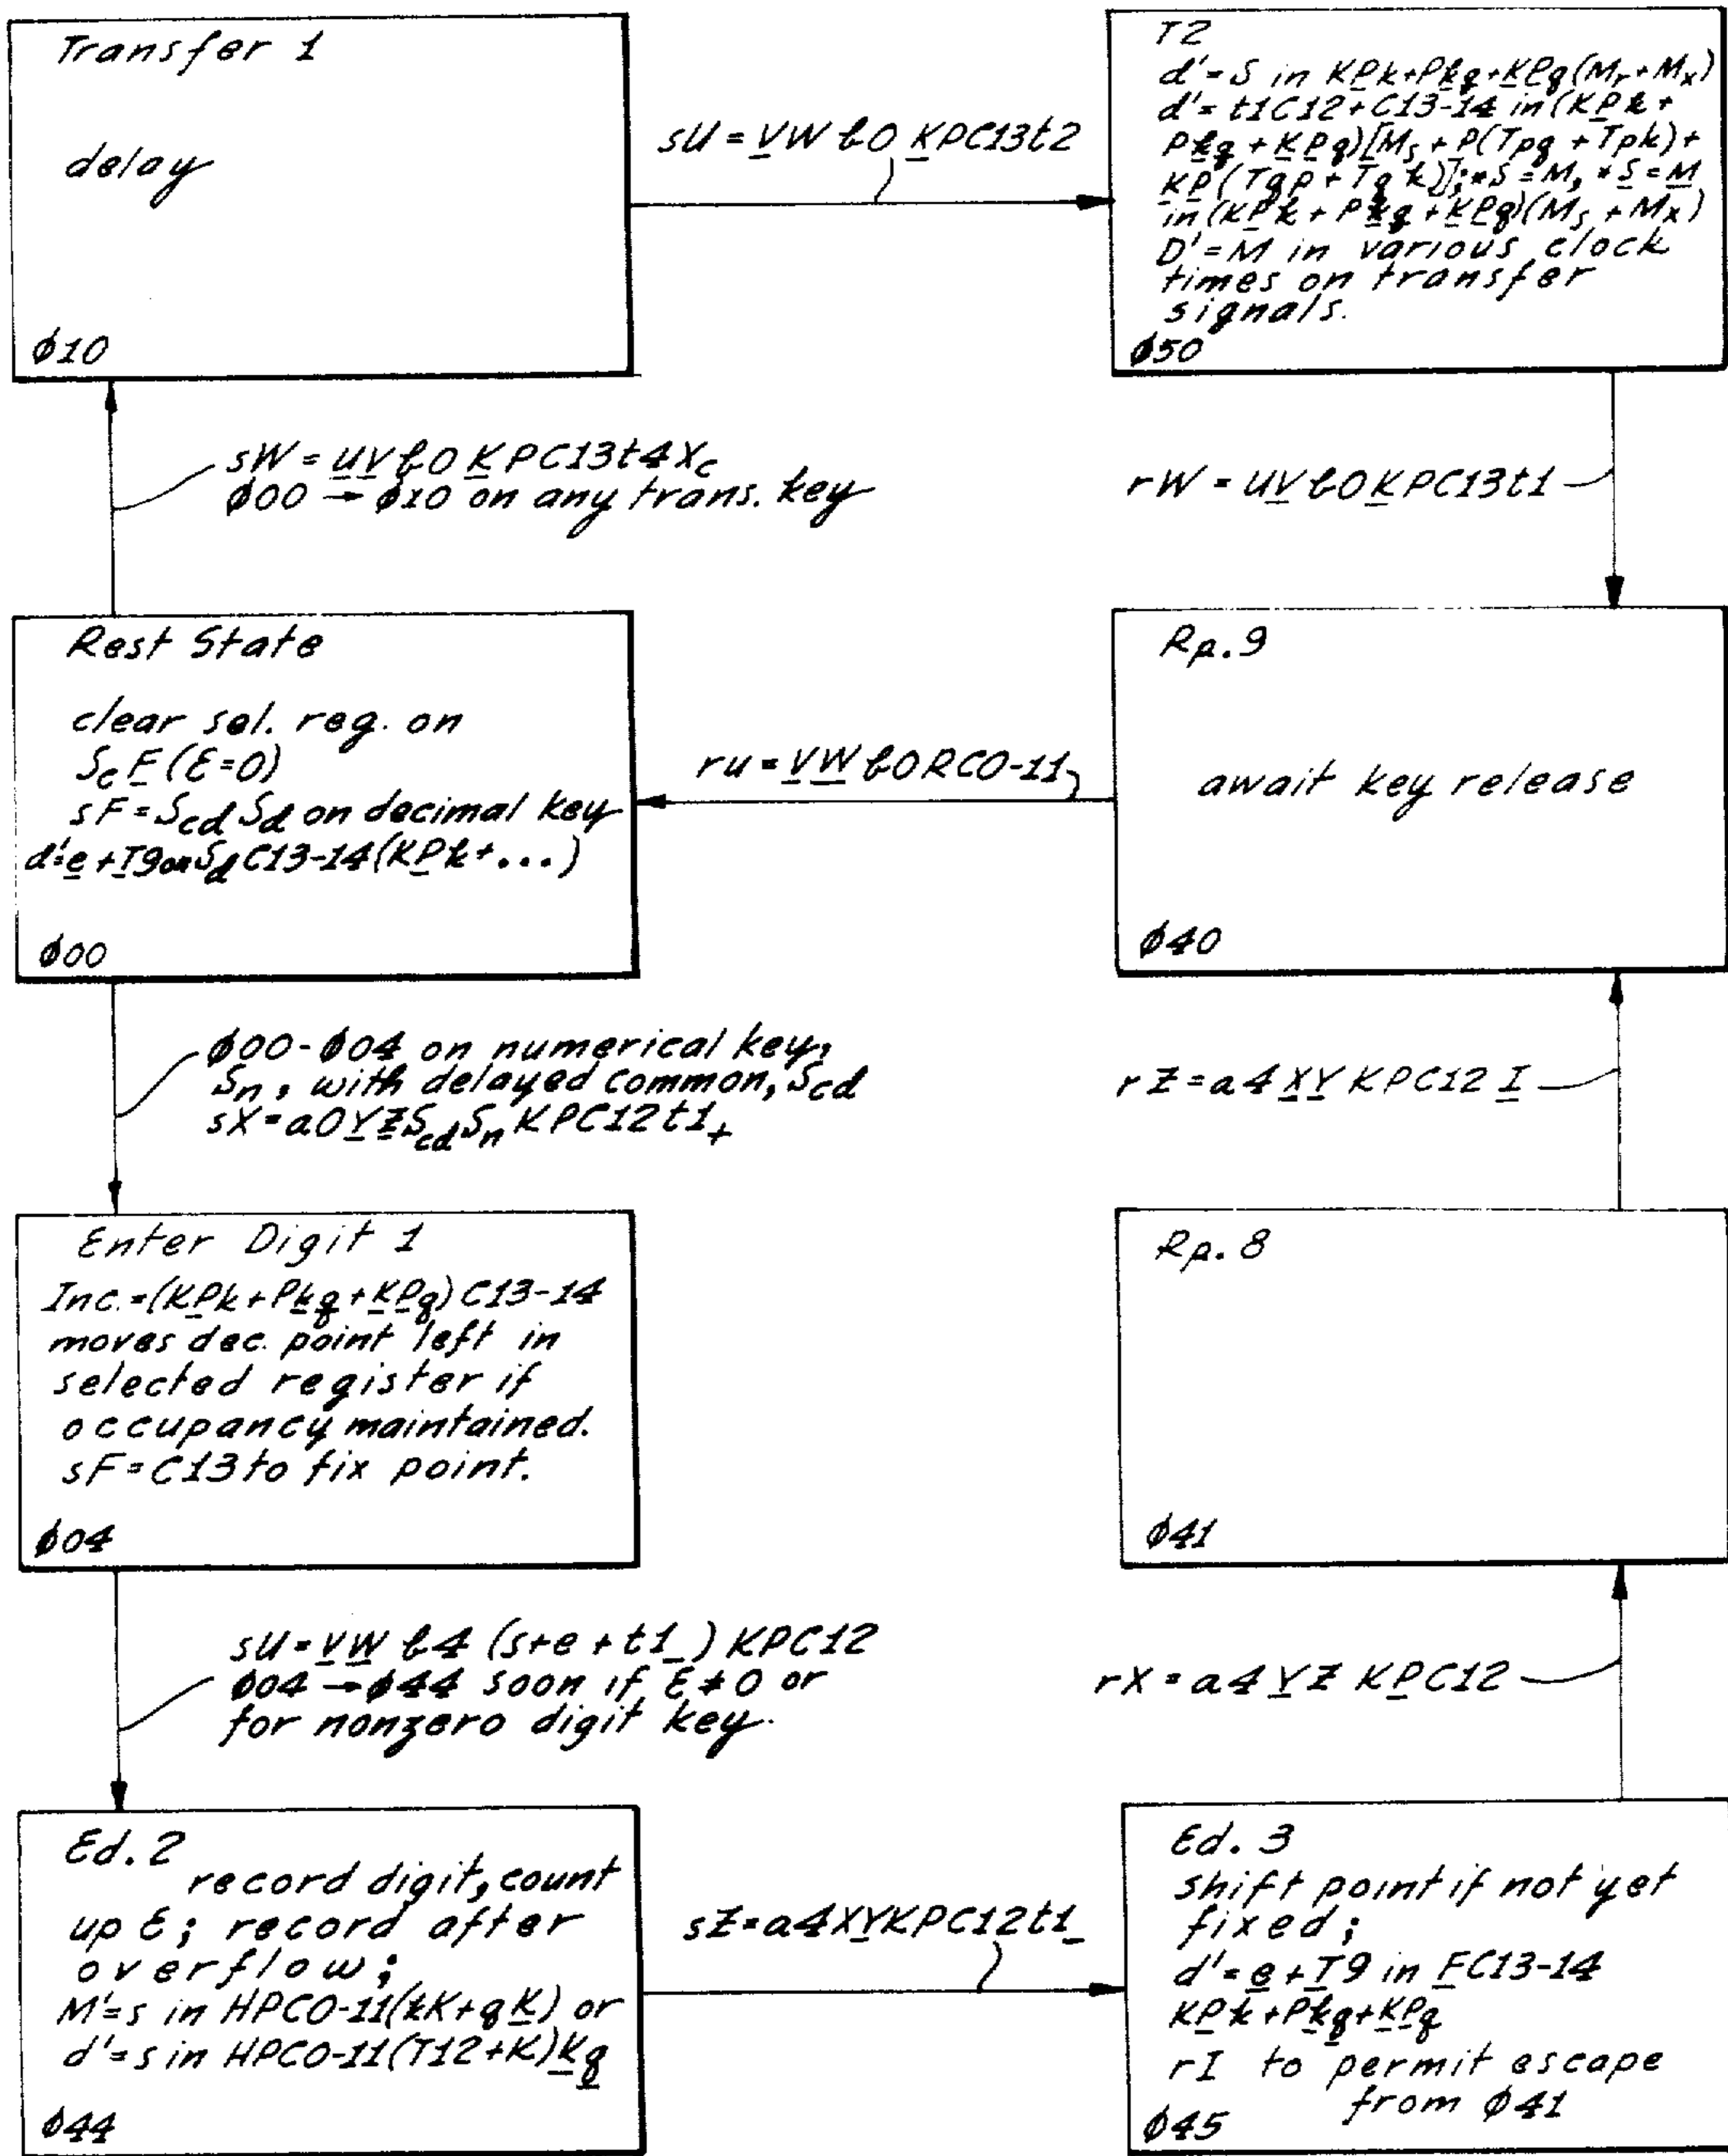 Transfer 1
delay
ϕ10
sU = V̲W ℓ0 K̲PC13t2
T2
d' = S in KP̲k+Pk̲q̲+K̲P̲q(Mr+Mx)
d' = t1C12+C13-14 in (KP̲k+
Pk̲q̲+K̲P̲q)[Ms+P(Tpq+Tpk)+
K̲P̲(Tqp+Tqk)]; *S=M, *S̲=M̲
in (KP̲k+Pk̲q̲+K̲P̲q)(Ms+Mx)
D'=M in various clock
times on transfer
signals.
ϕ50
sW = U̲V̲ ℓ0 K̲PC13t4Xc
ϕ00 → ϕ10 on any trans. key
rW = UV̲ ℓ0K̲PC13t1
Rest State
clear sel. reg. on
Sc F̲ (Ɛ=0)
sF=Scd Sd on decimal key
d'=e̲+T̲9 on Sd C13-14(KP̲k+...)
ϕ00
ru = V̲W̲ ℓ0RC0-11
Rp.9
await key release
ϕ40
ϕ00-ϕ04 on numerical key,
Sn, with delayed common, Scd
sX=a0Y̲Z̲ScdSnKPC12t1+
rZ=a4X̲Y̲ KPC12 I̲
Enter Digit 1
Inc.=(KP̲k+Pk̲q̲+K̲P̲q)C13-14
moves dec. point left in
selected register if
occupancy maintained.
sF=C13 to fix point.
ϕ04
Rp.8
ϕ41
sU=V̲W̲ ℓ4 (s+e+t1_) KPC12
ϕ04 → ϕ44 soon if Ɛ≠0 or
for nonzero digit key.
rX=a4 Y̲Z KP̲C12
Ed.2
record digit, count
up Ɛ; record after
overflow;
M'=s in HPC0-11(kK+qK̲) or
d'=s in HPC0-11(T12+K)k̲q̲
ϕ44
sZ=a4XY̲KPC12t1_
Ed. 3
shift point if not yet
fixed;
d'=e̲+T̲9 in F̲C13-14
KP̲k+Pk̲q̲+K̲P̲q
rI to permit escape
from ϕ41
ϕ45